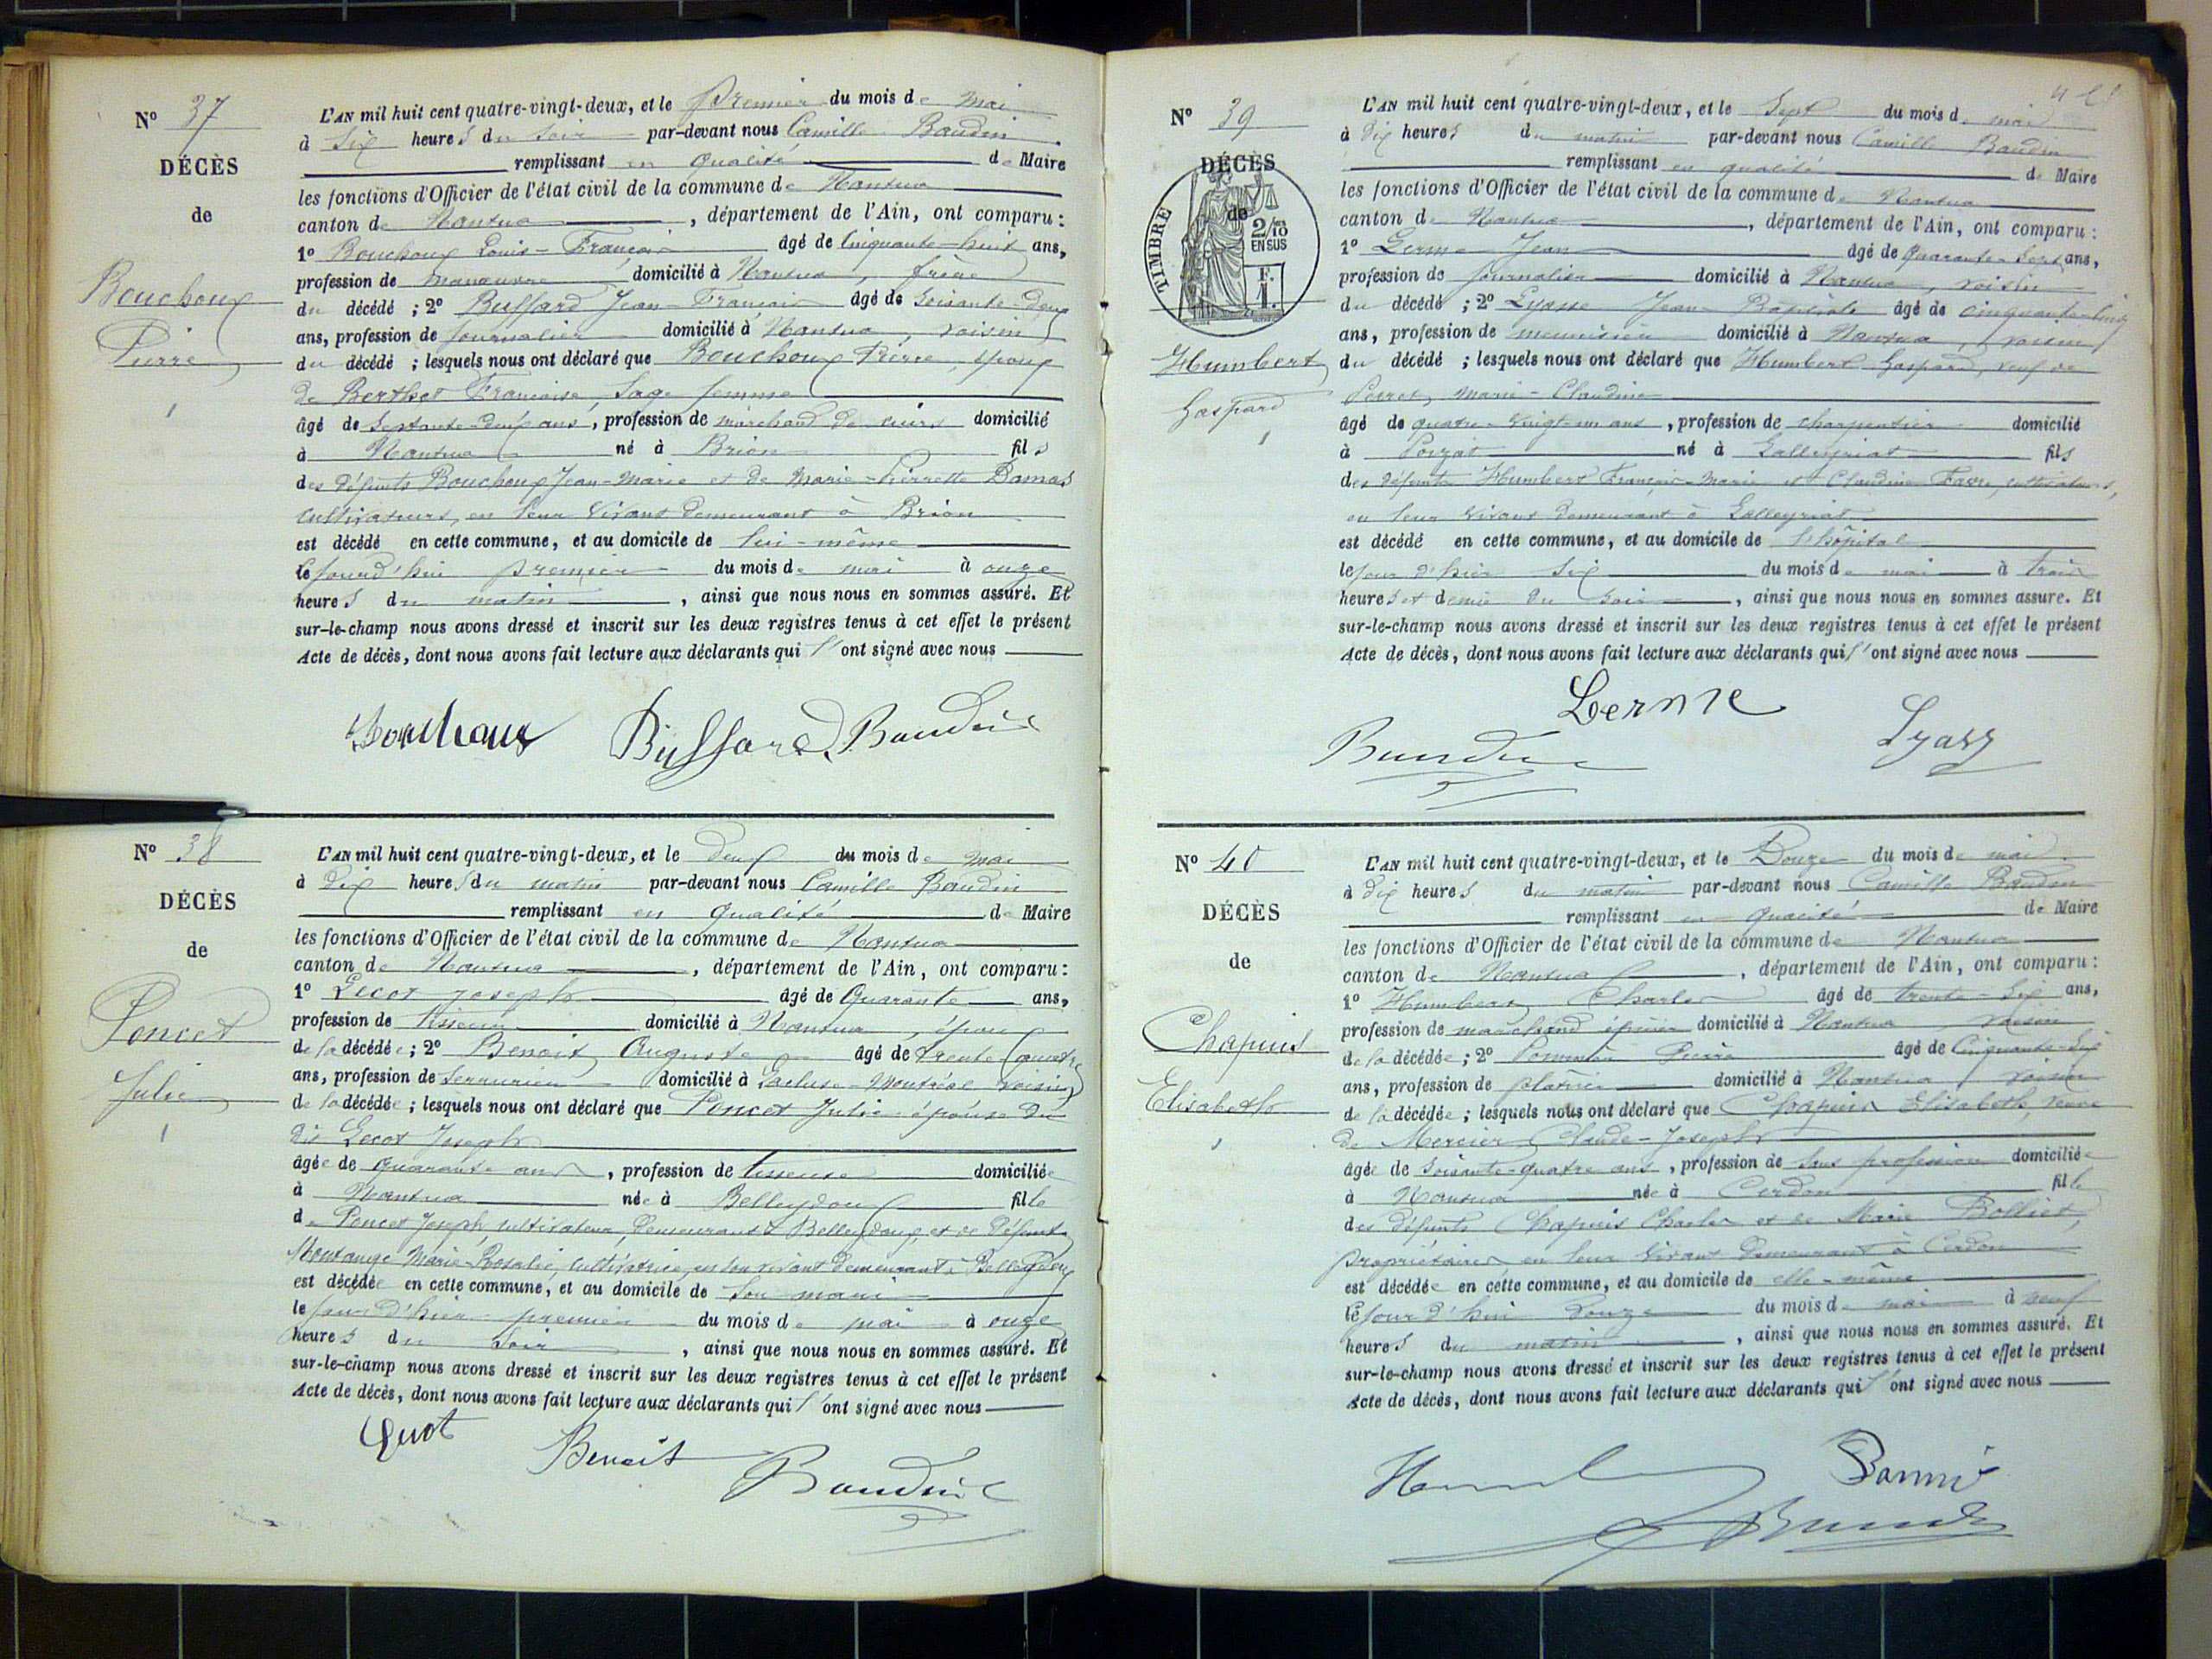 N° 37
DÉCÈS
de
Bouchoux
Pierre
L'AN mil huit cent quatre-vingt-deux, et le Premier du mois de mai
à Six heures du soir par-devant nous Camille Baudin
remplissant en qualité de Maire
les fonctions d'Officier de l'état civil de la commune de Nantua
canton de Nantua, département de l'Ain, ont comparu :
1° Bouchoux Louis-François âgé de Cinquante-huit ans,
profession de manœuvre domicilié à Nantua, frère
du décédé ; 2° Buffard Jean-François âgé de soixante-deux
ans, profession de journalier domicilié à Nantua, voisin
du décédé ; lesquels nous ont déclaré que Bouchoux Pierre, époux
de Berthet Françoise, Sage femme
âgé de Septante-deux ans, profession de marchand de cuirs domicilié
à Nantua né à Brion fils
des défunts Bouchoux Jean-Marie et de Marie-Pierrette Damas
cultivateurs, en leur vivant demeurant à Brion
est décédé en cette commune, et au domicile de lui-même
le jourd'hui premier du mois de mai à onze
heures du matin, ainsi que nous nous en sommes assuré. Et
sur-le-champ nous avons dressé et inscrit sur les deux registres tenus à cet effet le présent
Acte de décès, dont nous avons fait lecture aux déclarants qui l'ont signé avec nous
Bouchoux Buffard Baudin
N° 38
DÉCÈS
de
Poncet
Julie
L'AN mil huit cent quatre-vingt-deux, et le Deux du mois de mai
à Dix heures du matin par-devant nous Camille Baudin
remplissant en qualité de Maire
les fonctions d'Officier de l'état civil de la commune de Nantua
canton de Nantua, département de l'Ain, ont comparu :
1° Lecot Joseph âgé de Quarante ans,
profession de tisseur domicilié à Nantua, époux
de la décédée ; 2° Benoit Auguste âgé de trente quatre
ans, profession de Serrurier domicilié à Lacluse-Montréal voisin
de la décédée ; lesquels nous ont déclaré que Poncet Julie épouse du
dit Lecot Joseph
âgée de quarante ans, profession de tisseuse domiciliée
à Nantua née à Belleydoux fille
de Poncet Joseph, cultivateur, demeurant à Belleydoux, et de défunte
Montange Marie-Rosalie, cultivatrice, en son vivant demeurant à Belleydoux
est décédée en cette commune, et au domicile de son mari
le jour d'hier premier du mois de mai à onze
heures du soir, ainsi que nous nous en sommes assuré. Et
sur-le-champ nous avons dressé et inscrit sur les deux registres tenus à cet effet le présent
Acte de décès, dont nous avons fait lecture aux déclarants qui l'ont signé avec nous
Benoit Baudin
N° 39
DÉCÈS
de
TIMBRE
2/10
EN SUS
F.
1.
Humbert
Gaspard
L'AN mil huit cent quatre-vingt-deux, et le Sept du mois de mai
à Dix heures du matin par-devant nous Camille Baudin
remplissant en qualité de Maire
les fonctions d'Officier de l'état civil de la commune de Nantua
canton de Nantua, département de l'Ain, ont comparu :
1° Lerme Jean âgé de Quarante-sept ans,
profession de journalier domicilié à Nantua, voisin
du décédé ; 2° Lyasse Jean-Baptiste âgé de cinquante-cinq
ans, profession de menuisier domicilié à Nantua, voisin
du décédé ; lesquels nous ont déclaré que Humbert Gaspard, veuf de
Perret, Marie-Claudine
âgé de quatre-vingt-un ans, profession de charpentier domicilié
à Poizat né à Lalleyriat fils
des défunts Humbert François-Marie et Claudine Favre, cultivateurs,
en leur vivant demeurant à Lalleyriat
est décédé en cette commune, et au domicile de l'hôpital
le jour d'hier six du mois de mai à trois
heures et demie du soir, ainsi que nous nous en sommes assuré. Et
sur-le-champ nous avons dressé et inscrit sur les deux registres tenus à cet effet le présent
Acte de décès, dont nous avons fait lecture aux déclarants qui l'ont signé avec nous
Lerme
Baudin
N° 40
DÉCÈS
de
Chapuis
Elisabeth
L'AN mil huit cent quatre-vingt-deux, et le Douze du mois de mai
à dix heures du matin par-devant nous Camille Baudin
remplissant en qualité de Maire
les fonctions d'Officier de l'état civil de la commune de Nantua
canton de Nantua, département de l'Ain, ont comparu :
1° Humbert Charles âgé de trente-six ans,
profession de marchand épicier domicilié à Nantua voisin
de la décédée ; 2° Pierre âgé de Cinquante-six
ans, profession de plâtrier domicilié à Nantua, voisin
de la décédée ; lesquels nous ont déclaré que Chapuis Elisabeth, veuve
de Mercier Claude-Joseph
âgée de soixante-quatre ans, profession de sans profession domiciliée
à Nantua née à Cerdon fille
des défunts Chapuis Charles et de Marie Bolliet,
propriétaires en leur vivant demeurant à Cerdon
est décédée en cette commune, et au domicile de elle-même
le jour d'hui douze du mois de mai à neuf
heures du matin, ainsi que nous nous en sommes assuré. Et
sur-le-champ nous avons dressé et inscrit sur les deux registres tenus à cet effet le présent
Acte de décès, dont nous avons fait lecture aux déclarants qui l'ont signé avec nous